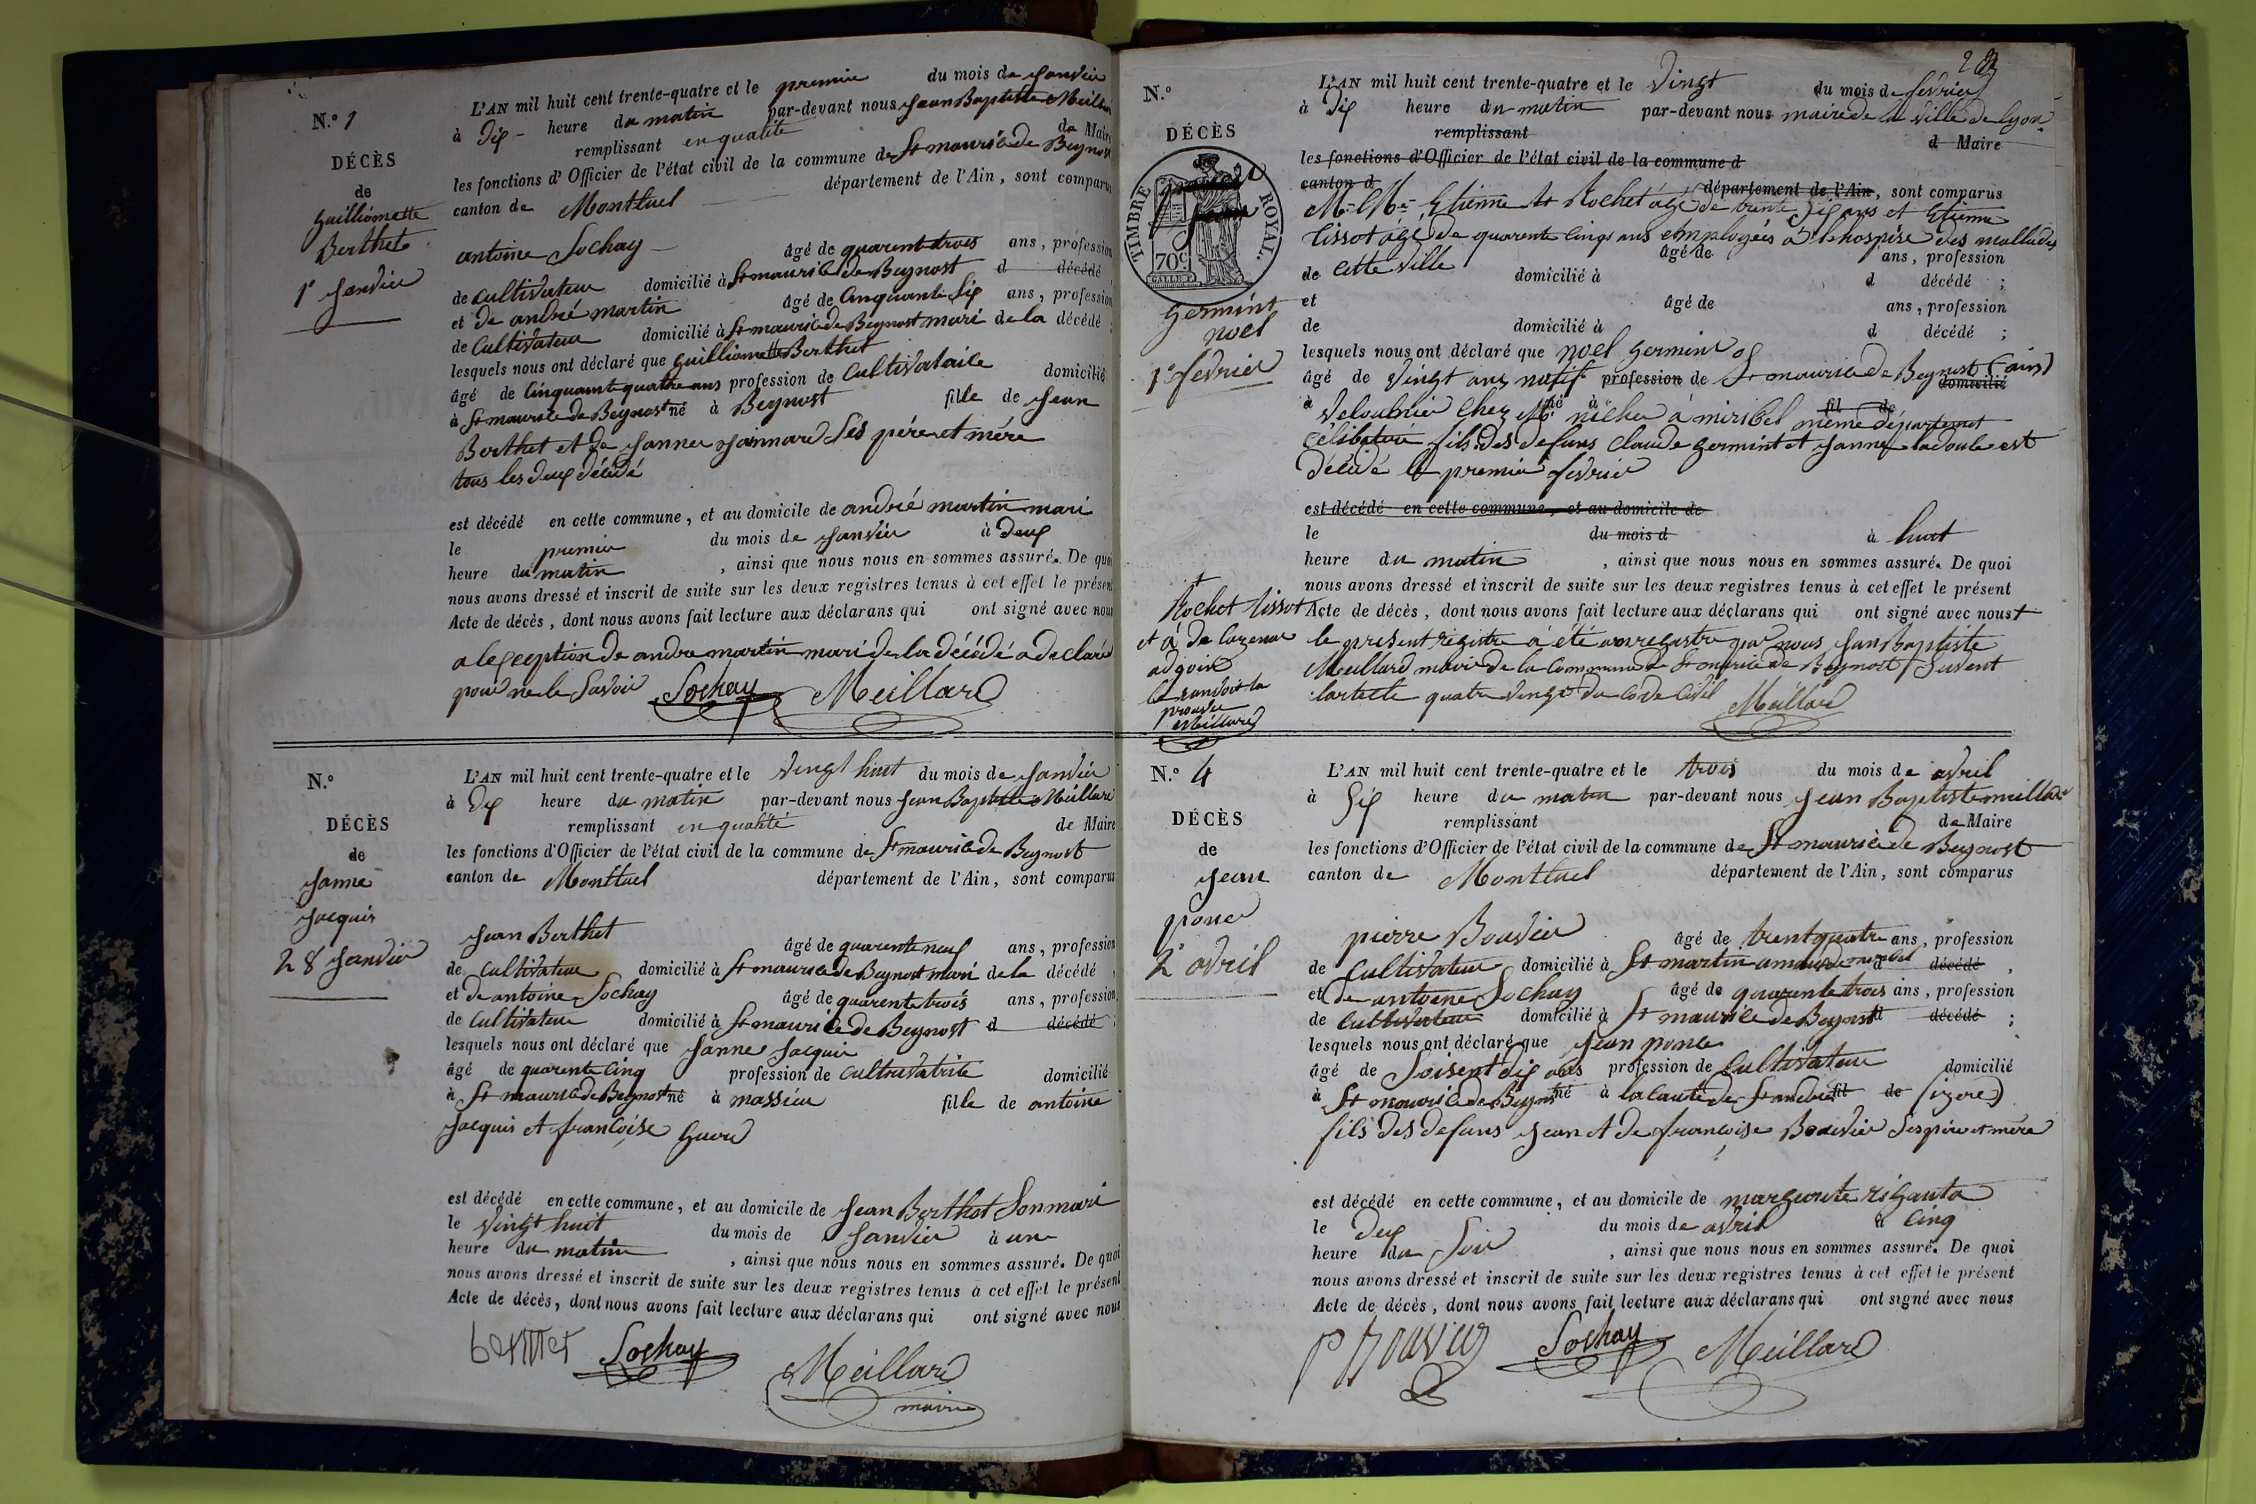 N.º 1
DÉCÈS
de
guilliomette
Berthet
1er janvier
L'AN mil huit cent trente-quatre et le premier du mois de janvier
à dix heure du matin par-devant nous jean Baptiste Meillard
remplissant en qualité de Maire
les fonctions d'Officier de l'état civil de la commune de St maurice de Beynost
canton de Montluel département de l'Ain, sont comparus
antoine Sochay âgé de quarent trois ans, profession
de cultivateur domicilié à St maurice de Beynost d décédé
et de andré martin âgé de Cinquante Six ans, profession
de Cultivateur domicilié à St maurice de Beynost mari de la décédé ;
lesquels nous ont déclaré que guilliomette Berthet
âgé de Cinquante quatre ans profession de Cultivatrice domicilié
à St maurice de Beynost né à Beynost fille de jean
Berthet et de janne jainnard Ses père et mère
tous les deux décédé
est décédé en cette commune, et au domicile de andré martin mari
le premier du mois de janvier à deux
heure du matin, ainsi que nous nous en sommes assuré. De quoi
nous avons dressé et inscrit de suite sur les deux registres tenus à cet effet le présent
Acte de décès, dont nous avons fait lecture aux déclarans qui ont signé avec nous
a lexception de andre martin mari de la décédé a declaré
pour ne le Savoir Sochay Meillard
N.º
DÉCÈS
de
janne
jacquier
28 janvier
L'AN mil huit cent trente-quatre et le vingt huit du mois de janvier
à dix heure du matin par-devant nous jean Baptiste Meillard
remplissant en qualité de Maire
les fonctions d'Officier de l'état civil de la commune de St maurice de Beynost
canton de Montluel département de l'Ain, sont comparus
jean Berthet âgé de quarente neuf ans, profession
de cultivateur domicilié à St maurice de Beynost mari de la décédé ,
et de antoine Sochay âgé de quarente trois ans, profession
de Cultivateur domicilié à St maurice de Beynost d décédé ;
lesquels nous ont déclaré que janne jacquier
âgé de quarente Cinq profession de cultivatrice domicilié
à St maurice de Beynost né à massieu fille de antoine
jacquier et françoise
est décédé en cette commune, et au domicile de jean Berthet Son mari
le vingt huit du mois de janvier à une
heure du matin, ainsi que nous nous en sommes assuré. De quoi
nous avons dressé et inscrit de suite sur les deux registres tenus à cet effet le présent
Acte de décès, dont nous avons fait lecture aux déclarans qui ont signé avec nous
berttet Sochay Meillard
maire
N.º
DÉCÈS
TIMBRE ROYAL
70c
germint
noel
1er fevrier
L'AN mil huit cent trente-quatre et le vingt du mois de fevrier
à dix heure du matin par-devant nous maire de la ville de lyon
remplissant d Maire
les fonctions d'Officier de l'état civil de la commune d
canton d département de l'Ain, sont comparus
Etienne Rochet âgé de trente Six ans et Etienne
tissot agé de quarente Cinq ans employés a lhospise des mallades
de Cette ville âgé de ans, profession
domicilié à d décédé ;
et âgé de ans, profession
de domicilié à d décédé ;
lesquels nous ont déclaré que noel germint
âgé de vingt ans natif profession de St maurice de Beynost (ain)
à domicilié
veloutier chez Mr né à richer à miribel fil de même departement
célibataire fils des defuns Claude germint et janne ladoule est
décédé le premier fevrier
est décédé en cette commune, et au domicile de
le du mois d à huit
heure du matin, ainsi que nous nous en sommes assuré. De quoi
nous avons dressé et inscrit de suite sur les deux registres tenus à cet effet le présent
Acte de décès, dont nous avons fait lecture aux déclarans qui ont signé avec nous +
le present registre à été enregistre par nous jean baptiste
Meillard maire de la Commune de St maurice de Beynost Suivent
lartecle quatre vingt du Code Civil Meillard
+
Rochet tissot
et a de Cazenove
adjoint
Meillard
N.º 4
DÉCÈS
de
jean
ponce
2 avril
L'AN mil huit cent trente-quatre et le trois du mois de avril
à Six heure du matin par-devant nous jean Baptiste meillard
remplissant de Maire
les fonctions d'Officier de l'état civil de la commune de St maurice de Beynost
canton de Montluel département de l'Ain, sont comparus
pierre Bouvier âgé de trent quatre ans, profession
de Cultivateur domicilié à St martin d décédé ,
et de antoine Sochay âgé de quarente trois ans, profession
de Cultivateur domicilié à St maurice de Beynost d décédé ;
lesquels nous ont déclaré que jean ponce
âgé de Soisent dix ans profession de Cultivateur domicilié
à St maurice de Beynost né à la Caute de St andre fil de (izere)
fils des defuns jean et de françoise Bouvier Ses père et mère
est décédé en cette commune, et au domicile de marguerite
le deux du mois de avril à Cinq
heure du Soir, ainsi que nous nous en sommes assuré. De quoi
nous avons dressé et inscrit de suite sur les deux registres tenus à cet effet le présent
Acte de décès, dont nous avons fait lecture aux déclarans qui ont signé avec nous
P Bouvier Sochay Meillard